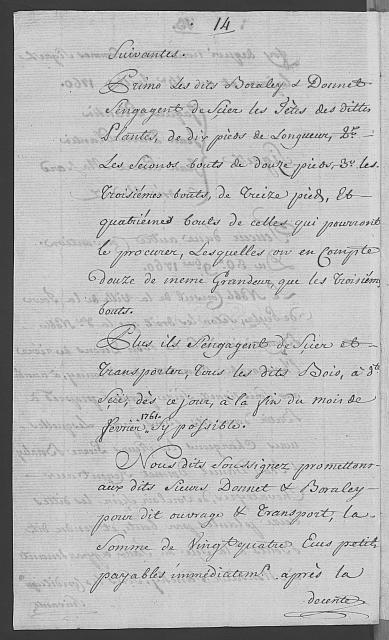 14
Suivantes.
Primo Les dits Boraley & Donnet
S'engagent de Scier les Têtes des dittes
Plantes, de dix pieds de Longueur, 2do
Les Seconds bouts de douze pieds, 3o les
Troisiémes bouts, de Treize pieds, Et
quatriémes bouts de celles qui pourront
le procurer, Lesquelles on en Compte
douze de meme Grandeur, que les Troisiém
bouts.
Plus ils S'engagent de Scier et
Transporter, Tous les dits Bois, à dt
Scie, dès ce jour, à la fin du mois de
fevrier 1761. Sy possible.
Nous dits Soussignez promettons
aux dits Sieurs Donnet & Boraley
pour dit ouvrage & Transport, la
Somme de Vingt quatre Ecus petit
payables immédiatemt. après la
decente